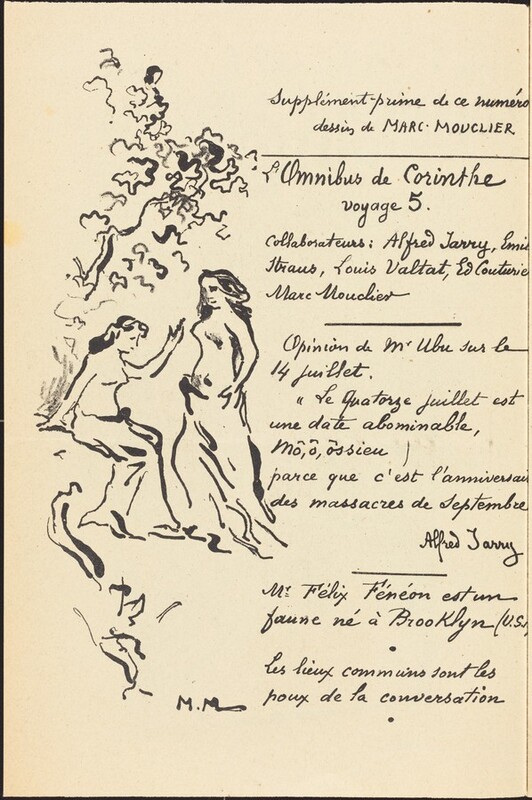 Supplément-prime de ce numéro
dessin de MARC-MOUCLIER
L'Omnibus de Corinthe
voyage 5.
Collaborateurs: Alfred Jarry, Emi
Straus, Louis Valtat, Ed Couturie
Marc Mouclier
Opinion de Mr Ubu sur le
14 juillet.
" Le Quatorze juillet est
une date abominable,
Mô,ô,ôssieu !
parce que c'est l'anniversai
des massacres de Septembre
Alfred Jarry
Mr Félix Fénéon est un
faune né à Brooklyn (U.S.
Les lieux communs sont les
poux de la conversation
M.M